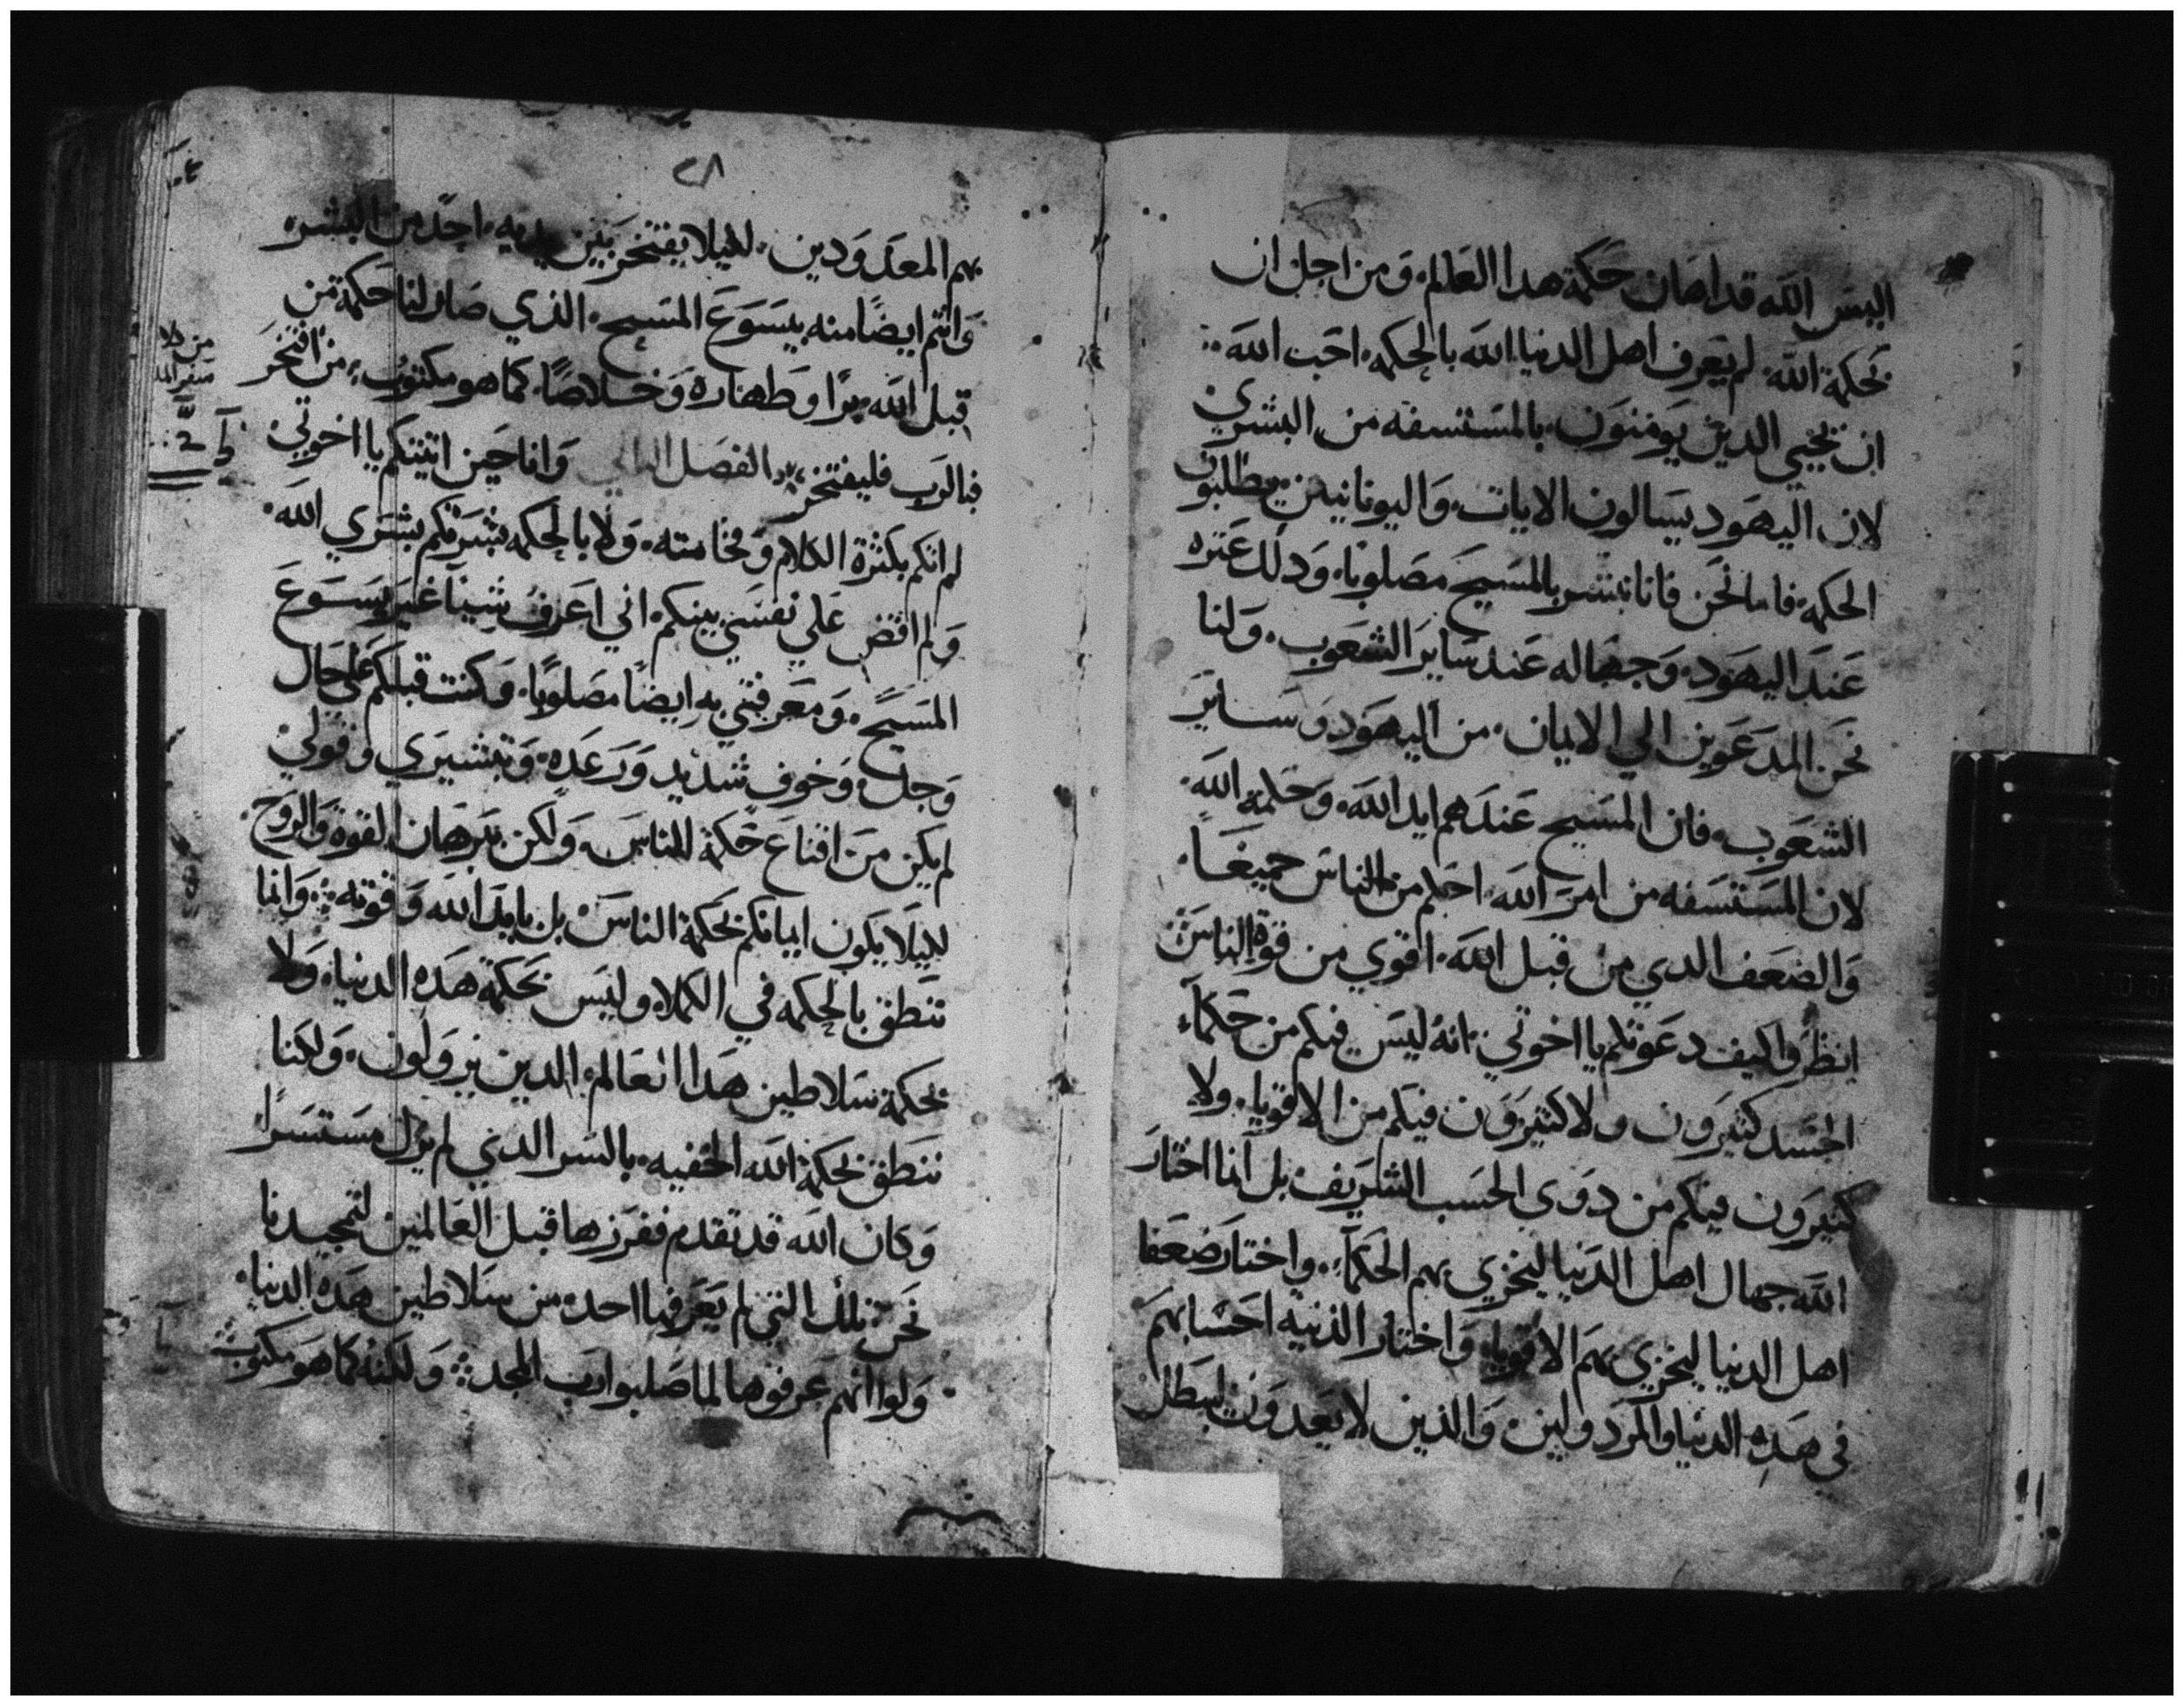 اليس الله قد اهان حكمة هدا العالم. ومن اجل ان
بحكمة الله. لم يعرف اهل الدنيا الله بالحكمه. احب الله
ان يحيي الدين يومنون. بالمستسفه من البشري
لان اليهود يسالون الايات. واليونانيين يطلبون
الحكمه. فاما نحن فانا نبشر بالمسيح مصلوبا. ودلك عثره
عند اليهود. وجهاله عند ساير الشعوب. ولنا
نحن المدعوين الي الايمان. من اليهود وساير
الشعوب. فان المسيح عندهم ايد الله. وحكمة الله.
لان المستسفه من امر الله. احكم من الناس جميعا.
والضعف الدي من قبل الله. اقوي من قوة الناس
انظروا كيف دعوتكم يا اخوتي. انه ليس فيكم من حكماء
الجسد كثيرون ولا كثيرون فيكم من الاقويا. ولا
كثيرون فيكم من دوى الحسب الشريف بل انما اختار
الله جهال اهل الدنيا ليخزي بهم الحكماء. واختار ضعفا
اهل الدنيا ليخزي بهم الاقويا. واختار الدنيه احسابهم
في هده الدنيا والمردولين. والدين لا يعدون ليبطل
٢٨
بهم المعدودين. لليلا يفتخر بين يديه. احد من البشر.
وانتم ايضا منه بيسوع المسيح. الذي صار لنا حكمة من
قبل الله. برا وطهاره وخلاصا. كما هو مكتوب. من افتخر
فبالرب فليفتخر. الفصل وانا حين اتيتكم يا اخوتي
لم اتكم بكثرة الكلام وفخامته. ولا بالحكمه بشرتكم بشري الله.
ولم اقض علي نفسي بينكم. اني اعرف شيئا غير يسوع
المسيح. ومعرفتي به ايضا مصلوبا. وكنت قبلكم علي حال
وجل. وخوف شديد ورعده. وتبشيري وقولي
لم يكن من اقناع حكمة الناس. ولكن ببرهان القوة والروح.
لليلا يكون ايمانكم بحكمة الناس. بل بايد الله وقوته. وانما
ننطق بالحكمه في الكملا. وليس بحكمة هده الدنيا. ولا
بحكمة سلاطين هدا العالم. الدين يزولون. ولكنا
ننطق بحكمة الله الخفيه. بالسر الدي لم يزل مستسرا
وكان الله قد تقدم ففرزها قبل العالمين لتمجيدنا
نحن تلك التي لم يعرفها احد من سلاطين هده الدنيا.
ولو انهم عرفوها لما صلبوا رب المجد. ولكنه كما هو مكتوب